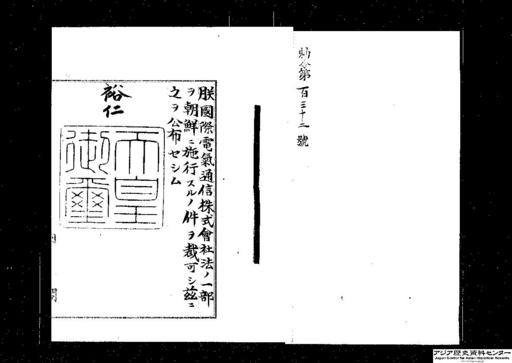 勅令第百三十二號
朕國際電氣通信株式會社法ノ一部
ヲ朝鮮ニ施行スルノ件ヲ裁可シ茲ニ
之ヲ公布セシム
裕仁
天皇御璽
アジア歴史資料センター
Japan Center for Asian Historical Records